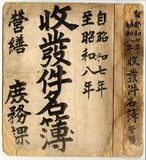 自昭和七年
至昭和八年
收發件名簿
營繕
庶務課
自昭和七年
至昭和八年
收發件名簿
營繕